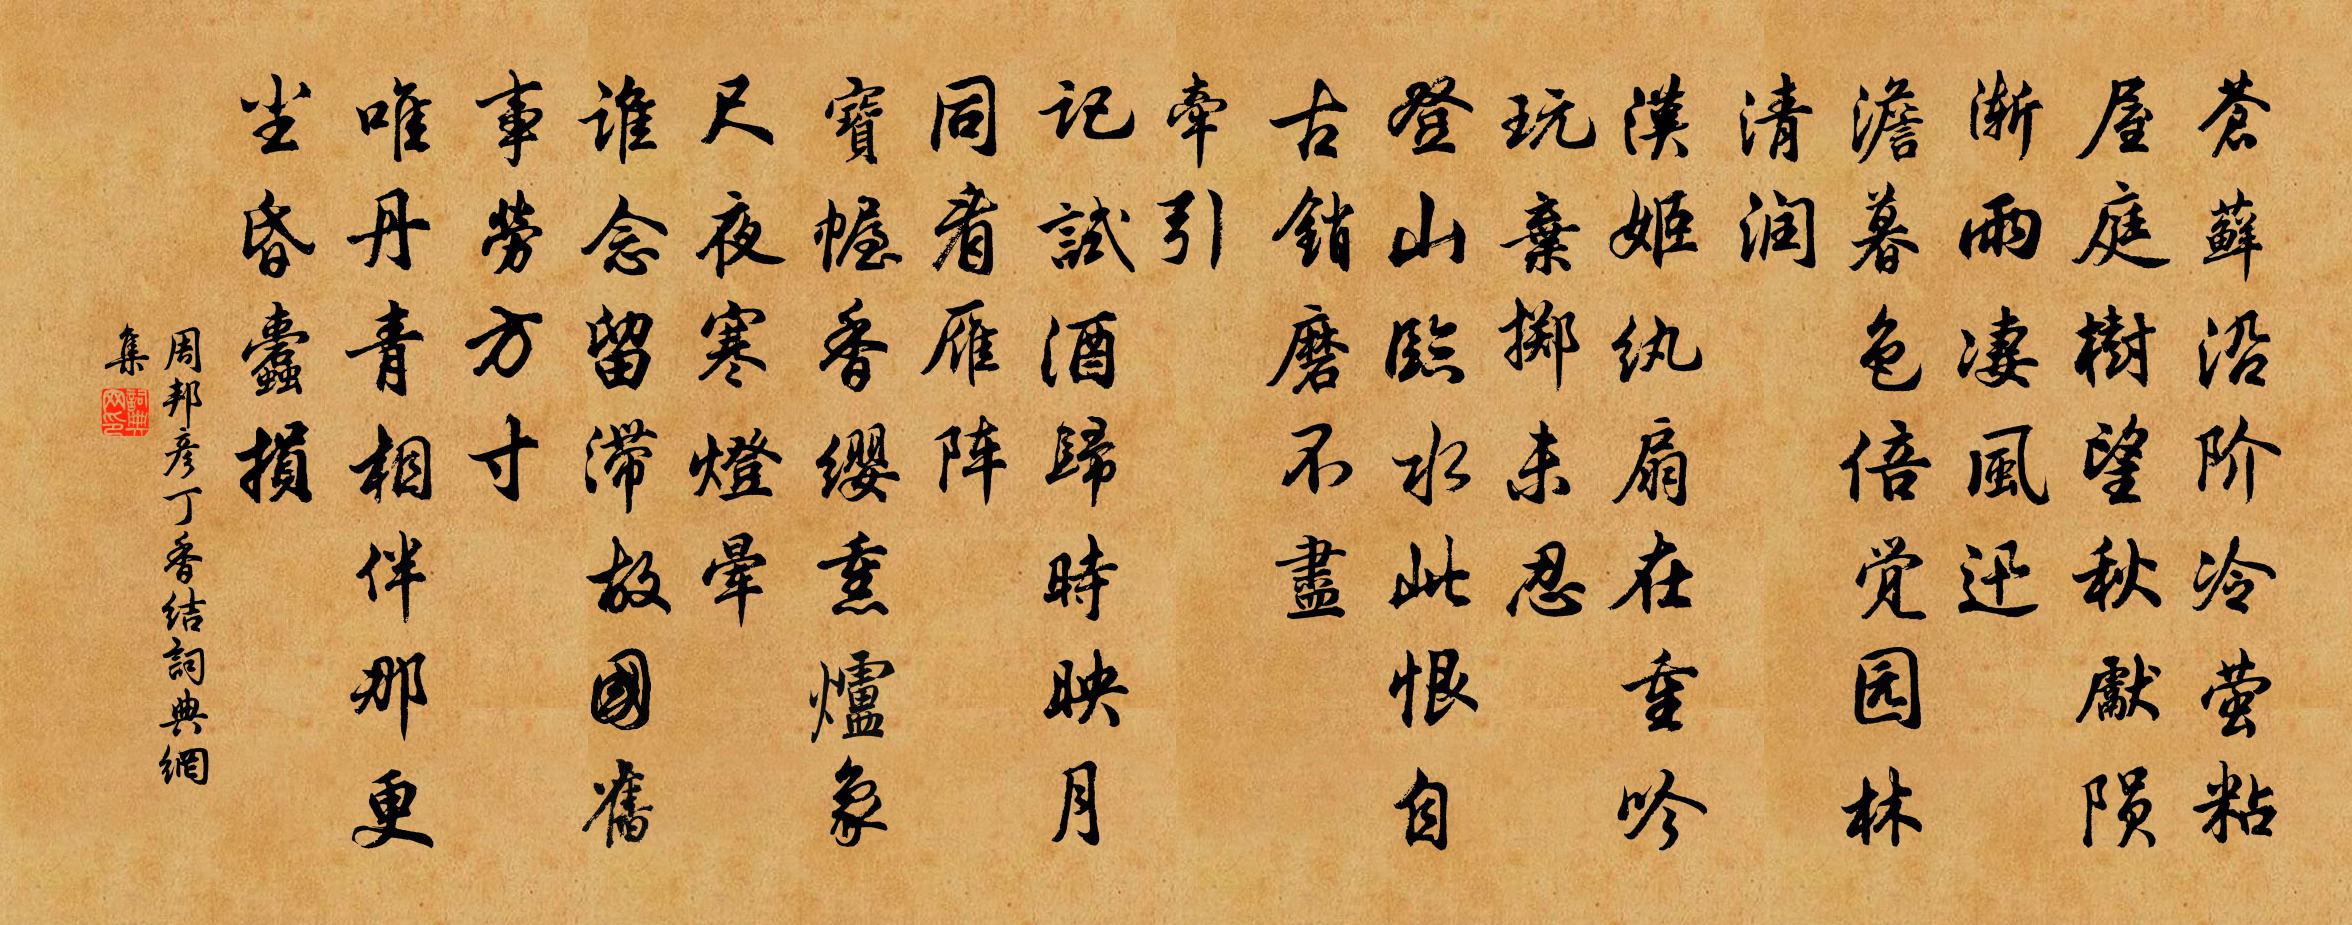 蒼蘚沿阶冷萤粘
屋庭樹望秋獻陨
渐雨凄風迅
澹暮色倍觉园林
清润
漢姬纨扇在重吟
玩棄掷未忍
登山臨水此恨自
古銷磨不盡
牽引
记試酒歸時映月
同看雁阵
寶幄香缨熏爐象
尺夜寒燈暈
谁念留滞故國舊
事勞方寸
唯丹青相伴那更
尘昏蠹損
周邦彦丁香结詞典網
集
詞典
网印